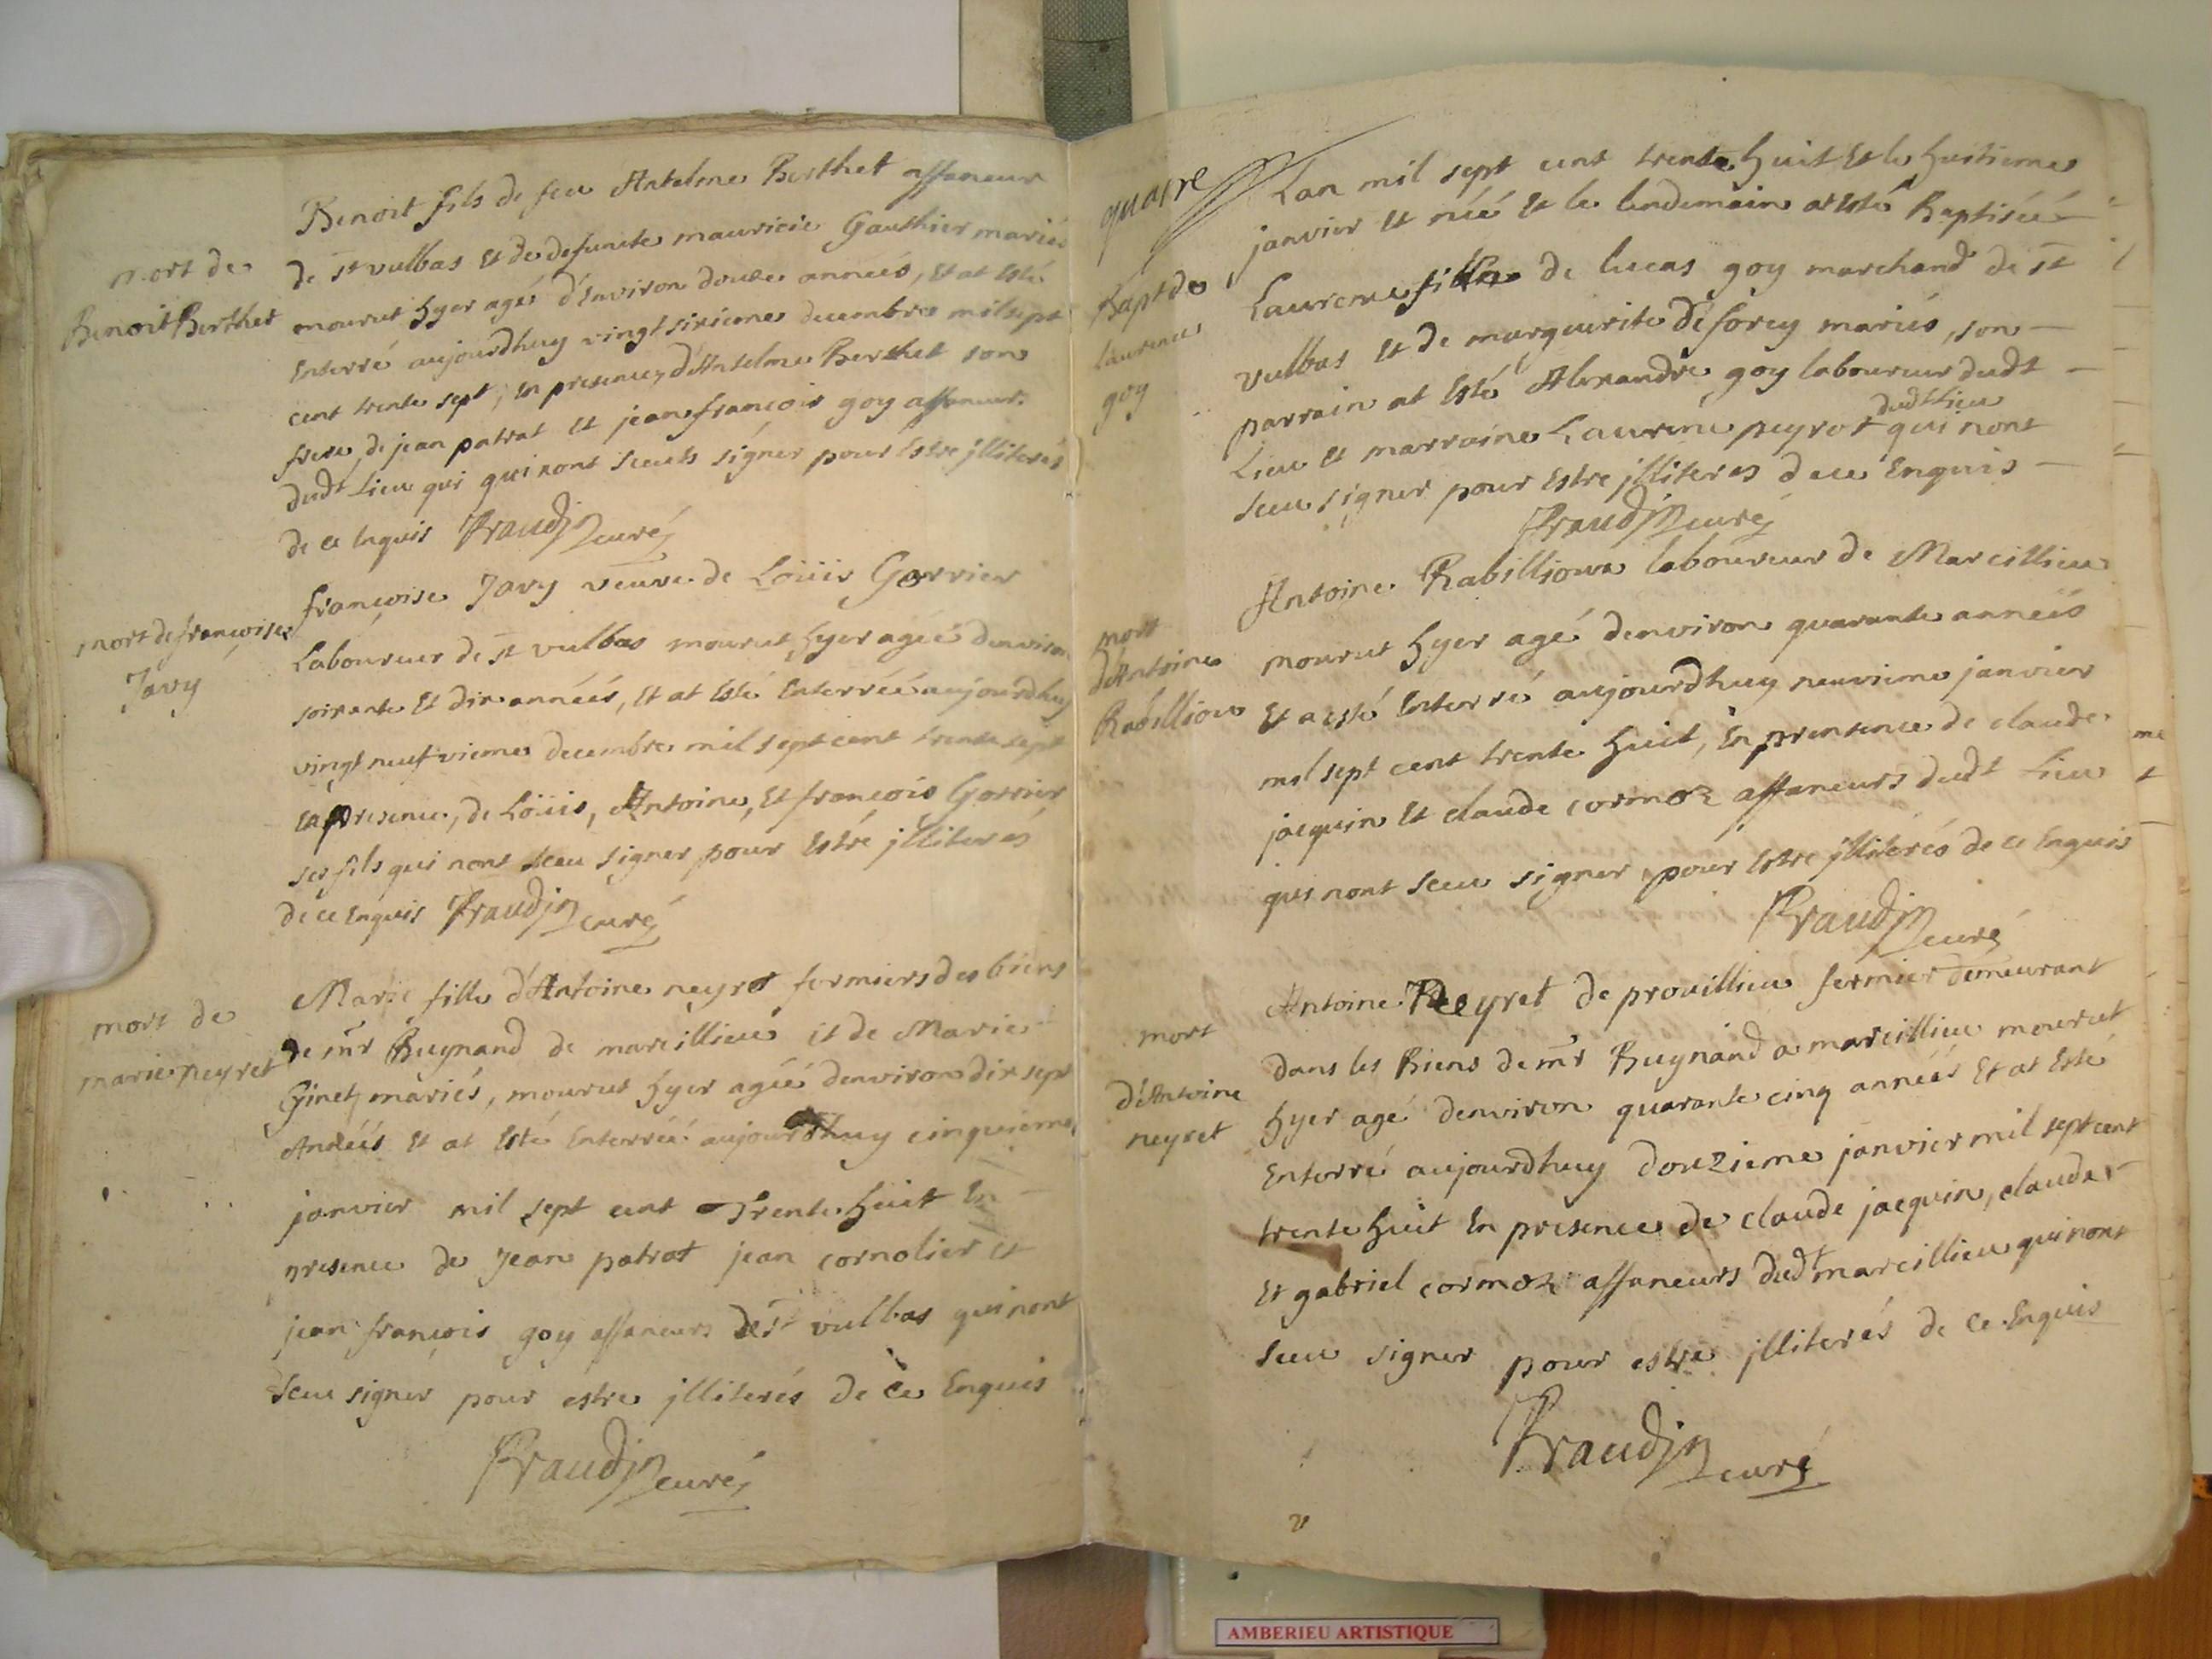 mort de
Benoit Berthet
Benoit fils de feu Antelme Berthet affaneur
de st vulbas et de defuncte mauricie Gauthier mariés
mourut hyer agé d'Environ douze années, et at Esté
Enterré aujourdhuy vingt sixieme decembre mil sept
cent trente sept, En presence, d'Antelme Berthet son
frere, de jean patrat et jean françois goy affaneurs
dudt Lieu qui qui nont sceuts signer pour Estre jlliterés
de ce Enquis Fraudin curé
mort de françoise
Javy
françoise Javy veuve de Loüis Gorrier
Laboureur de st vulbas mourut hyer ageé denviron
soixante Et dix années, Et at Esté Enterreé aujourdhuy
vingt neufvieme decembre mil sept cent trente sept
En presence, de Loüis, Antoine, Et françois Gorrier
ses fils qui nont sceu signer pour Estre jlliterés
de ce Enquis Fraudin curé
mort de
marie neyret
Marie fille d'Antoine neyret fermiers des biens
de mr Buynand de marcillieu et de Marie
Ginet mariés, mourut hyer ageé denviron dix sept
Années Et at Esté Enterreé aujourdhuy cinquieme
janvier mil sept cent trente huit En
presence de Jean patrat jean cornolier et
jean françois goy affaneurs de st vulbas qui nont
sceu signer pour estre jlliterés de ce Enquis
Fraudin curé
quatre
Bapt de
Laurence
goy
Lan mil sept cent trente huit Et le huitieme
janvier Et néé Et le lendemain at Esté Baptiséé
Laurence fille de lucas goy marchand de st
vulbas Et de marguerite deforey mariés, son
parrain at Esté Alexandre goy laboureur dudt
Lieu Et marraine Laurence peyrot dudt Lieu qui nont
sceu signer pour Estre jlliteres de ce Enquis
Fraudin curé
mort
d'Antoine
Rabilliou
Antoine Rabillioux laboureur de Marcillieu
mourut hyer agé denviron quarante années
Et a esté Enterré aujourdhuy neuvieme janvier
mil sept cent trente huit, En presence de claude
jacquin Et claude cormoz affaneurs dudt Lieu
qui nont sceu signer pour Estre jlliterés de ce Enquis
Fraudin curé
mort
d'Antoine
neyret
Antoine Neyret de prouillieu fermier demeurant
dans les Biens de mr Buynand a marcillieu mourut
hyer agé denviron quarante cinq années Et at Esté
Enterré aujourdhuy douzieme janvier mil sept cent
trente huit En presence de claude jacquin, claude
Et gabriel cormoz affaneurs dudt marcillieu qui nont
sceu signer pour estre jlliterés de ce Enquis
Fraudin curé
AMBERIEU ARTISTIQUE